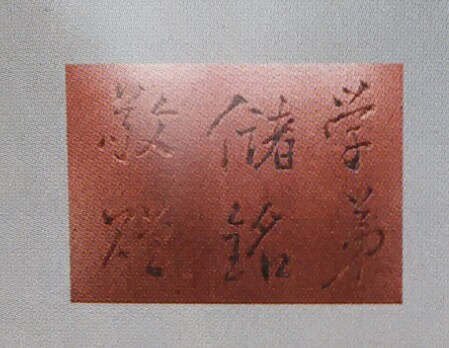 学弟
储铭
敬赠